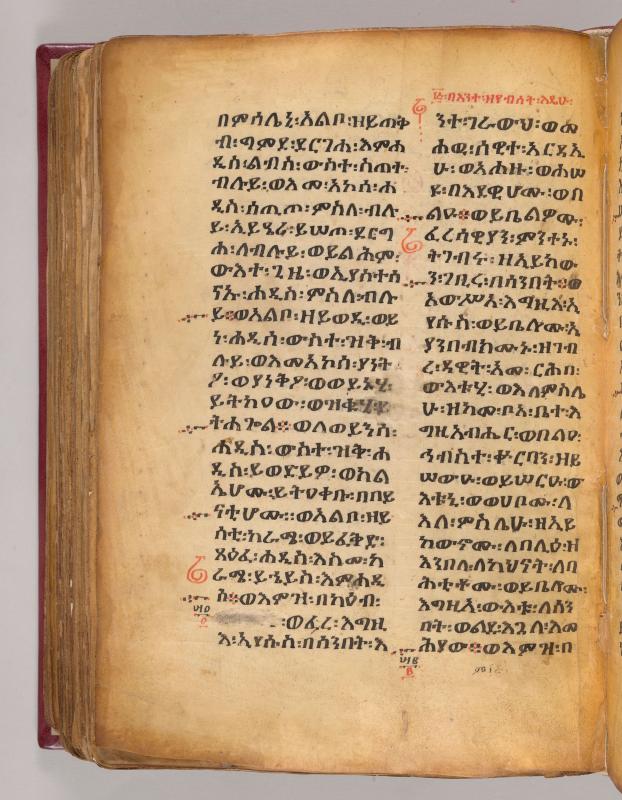 በምሳሌኒ፡አልቦ፡ዘይጠቅ
ብ፡ግምደ፡ደርገሐ፡እምሐ
ዲስ፡ልብስ፡ውስተ፡ስጠተ፡
ብሉይ፡ወእመ፡አኮሰ፡ሐ
ዲስ፡ሰጢጦ፡ምስለ፡ብሉ
ይ፡ኢይዔሪ፡ይሤጦ፡ደርግ
ሐ፡ለብሉይ፡ወይልሕም፡
ውእተ፡ጊዜ፡ወኢያስተሰ
ናኡ፡ሐዲስ፡ምስለ፡ብሉ
ይ፨ወአልቦ፡ዘይወዲ፡ወይ
ነ፡ሐዲሰ፡ውስተ፡ዝቅ፡ብ
ሉይ፡ወእመአኮሰ፡ያነት
ዖ፡ወያነቅዖ፡ወወይኑሂ፡
ይትከዐው፡ወዝቁሂ፡
ትሐጐል፨ወለወይንሰ፡
ሐዲስ፡ውስተ፡ዝቅ፡ሐ
ዲስ፡ይወድይዎ፡ወክል
ኤሆሙ፡ይትዐቀቡ፡በበይ
ናቲሆሙ።ወአልቦ፡ዘይ
ሰቲ፡ከራሜ፡ወይፈቅድ፡
ጸዕፈ፡ሐዲስ፡እስመ፡ከ
ራሜ፡ይኄይስ፡እምሐዲ
ስ፨ወእምዝ፡በካዕብ፡
፡ወፈረ፡እግዚ
እ፡ኢየሱስ፡በሰንበት፡እ
፡በእንተ፡ዘየብሰት፡እዴሁ፡
ንተ፡ገራውህ፡ወመ
ሐዉ፡ሰዊተ፡አርዳኢ
ሁ፡ወአሐዙ፡ወሐሠ
ዩ፡በእደዊሆሙ፡ወበ
ልዑ፨ወይቤልዎሙ፡
ፈሪሳዊያን፡ምንተኑ፡
ትገብሩ፡ዘኢይከው
ን፡ገቢረ፡በሰንበት፨ወ
አውሥአ፡እግዚእ፡ኢ
የሱስ፡ወይቤሎሙ፡ኢ
ያንበብክሙኑ፡ዘገብ
ረ፡ዳዊት፡አመ፡ርሕበ፡
ውእቱሂ፡ወእለምስሌ
ሁ፡ዘከመ፡ቦአ፡ቤተ፡እ
ግዚአብሔር፡ወበልዐ፡
ኅብስተ፡ቍርባን፡ዘይ
ሠውዑ፡ወይሠርዑ፡ው
እቱኒ፡ወወሀቦሙ፡ለ
እለ፡ምስሌሁ፡ዘኢይ
ከውኖሙ፡ለበሊዕ፡ዘ
እንበለ፡ለካህናት፡ለባ
ሕቲቶሙ፡ወይቤሎሙ፡
እግዚእ፡ውእቱ፡ለሰን
በት፡ወልደ፡እጓለ፡እመ
ሕያው፨ወእምዝ፡በ